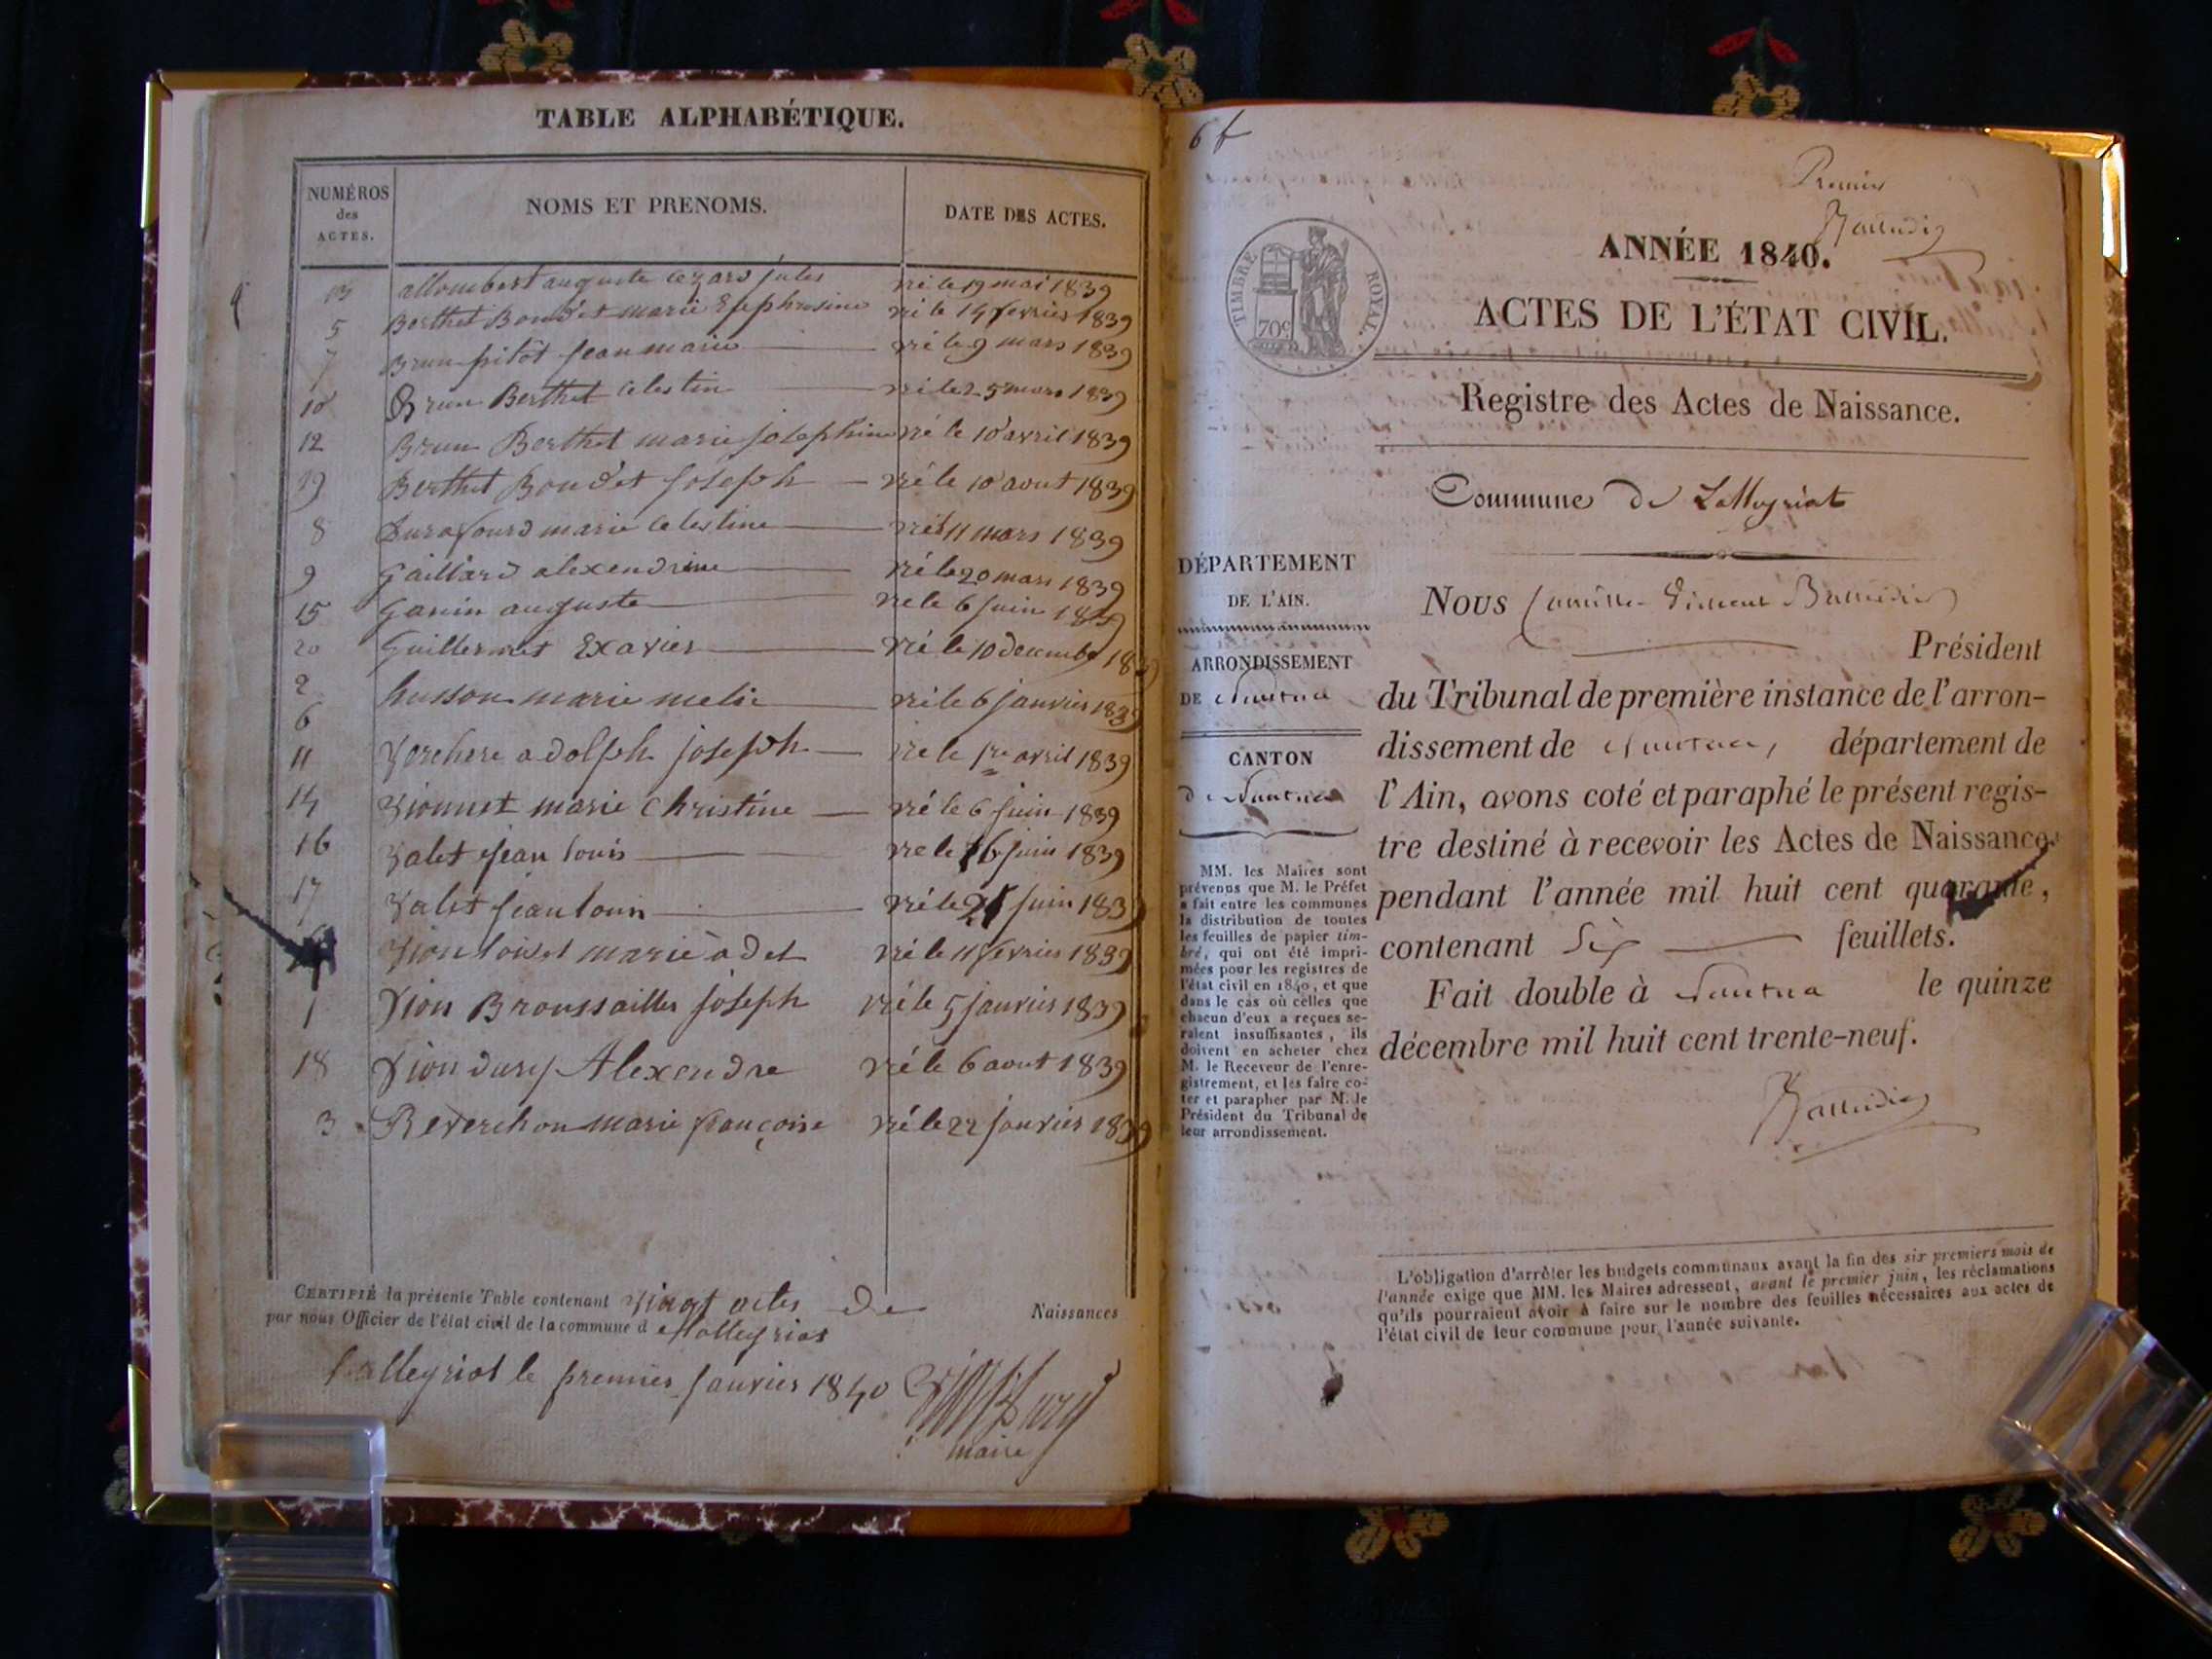 TABLE ALPHABÉTIQUE.
NUMÉROS
des
ACTES.
NOMS ET PRENOMS.
DATE DES ACTES.
13 allombert auguste cezard jules né le 19 mai 1839
5 Berthet Bondet marie né le 14 fevrier 1839
7 Brun pitôt jean marie né le 9 mars 1839
10 Brun Berthet celestin né le 25 mars 1839
12 Brun Berthet marie josephine né le 10 avril 1839
19 Berthet Bondet joseph né le 10 aout 1839
8 Durafourd marie celestine né le 11 mars 1839
9 Gaillard alexendrine né le 20 mars 1839
15 Ganin auguste né le 6 juin 1839
20 Guillermet Exavier né le 10 decembre 1839
2 husson marie melie né le 6 janvier 1839
6
11 Verchere adolph joseph né le 1re avril 1839
14 Vionnet marie Christine né le 6 juin 1839
16 Valet jean louis né le 16 juin 1839
17 Valet jean louis né le 21 juin 1839
Vion loiset marie adel né le 11 fevrier 1839
1 Vion Broussailles joseph né le 5 janvier 1839
18 Vion dury Alexendre né le 6 aout 1839
3 Reverchon marie françoise né le 22 janvier 1839
CERTIFIÉ la présente Table contenant vingt actes de Naissances
par nous Officier de l'état civil de la commune d
Lalleyriat le premier janvier 1840
maire
6 f
Premier
ANNÉE 1840.
ACTES DE L'ÉTAT CIVIL.
TIMBRE ROYAL.
70c
Registre des Actes de Naissance.
Commune de Lalleyriat
DÉPARTEMENT
DE L'AIN.
ARRONDISSEMENT
DE Nantua
CANTON
de Nantua
MM. les Maires sont
prévenus que M. le Préfet
a fait entre les communes
la distribution de toutes
les feuilles de papier tim-
bré, qui ont été impri-
mées pour les registres de
l'état civil en 1840, et que
dans le cas où celles que
chacun d'eux a reçues se-
raient insuffisantes, ils
doivent en acheter chez
M. le Receveur de l'enre-
gistrement, et les faire co-
ter et parapher par M. le
Président du Tribunal de
leur arrondissement.
Nous Camille
Président
du Tribunal de première instance de l'arron-
dissement de Nantua, département de
l'Ain, avons coté et paraphé le présent regis-
tre destiné à recevoir les Actes de Naissance
pendant l'année mil huit cent quarante,
contenant Six feuillets.
Fait double à Nantua le quinze
décembre mil huit cent trente-neuf.
L'obligation d'arrêter les budgets communaux avant la fin des six premiers mois de
l'année exige que MM. les Maires adressent, avant le premier juin, les réclamations
qu'ils pourraient avoir à faire sur le nombre des feuilles nécessaires aux actes de
l'état civil de leur commune pour l'année suivante.